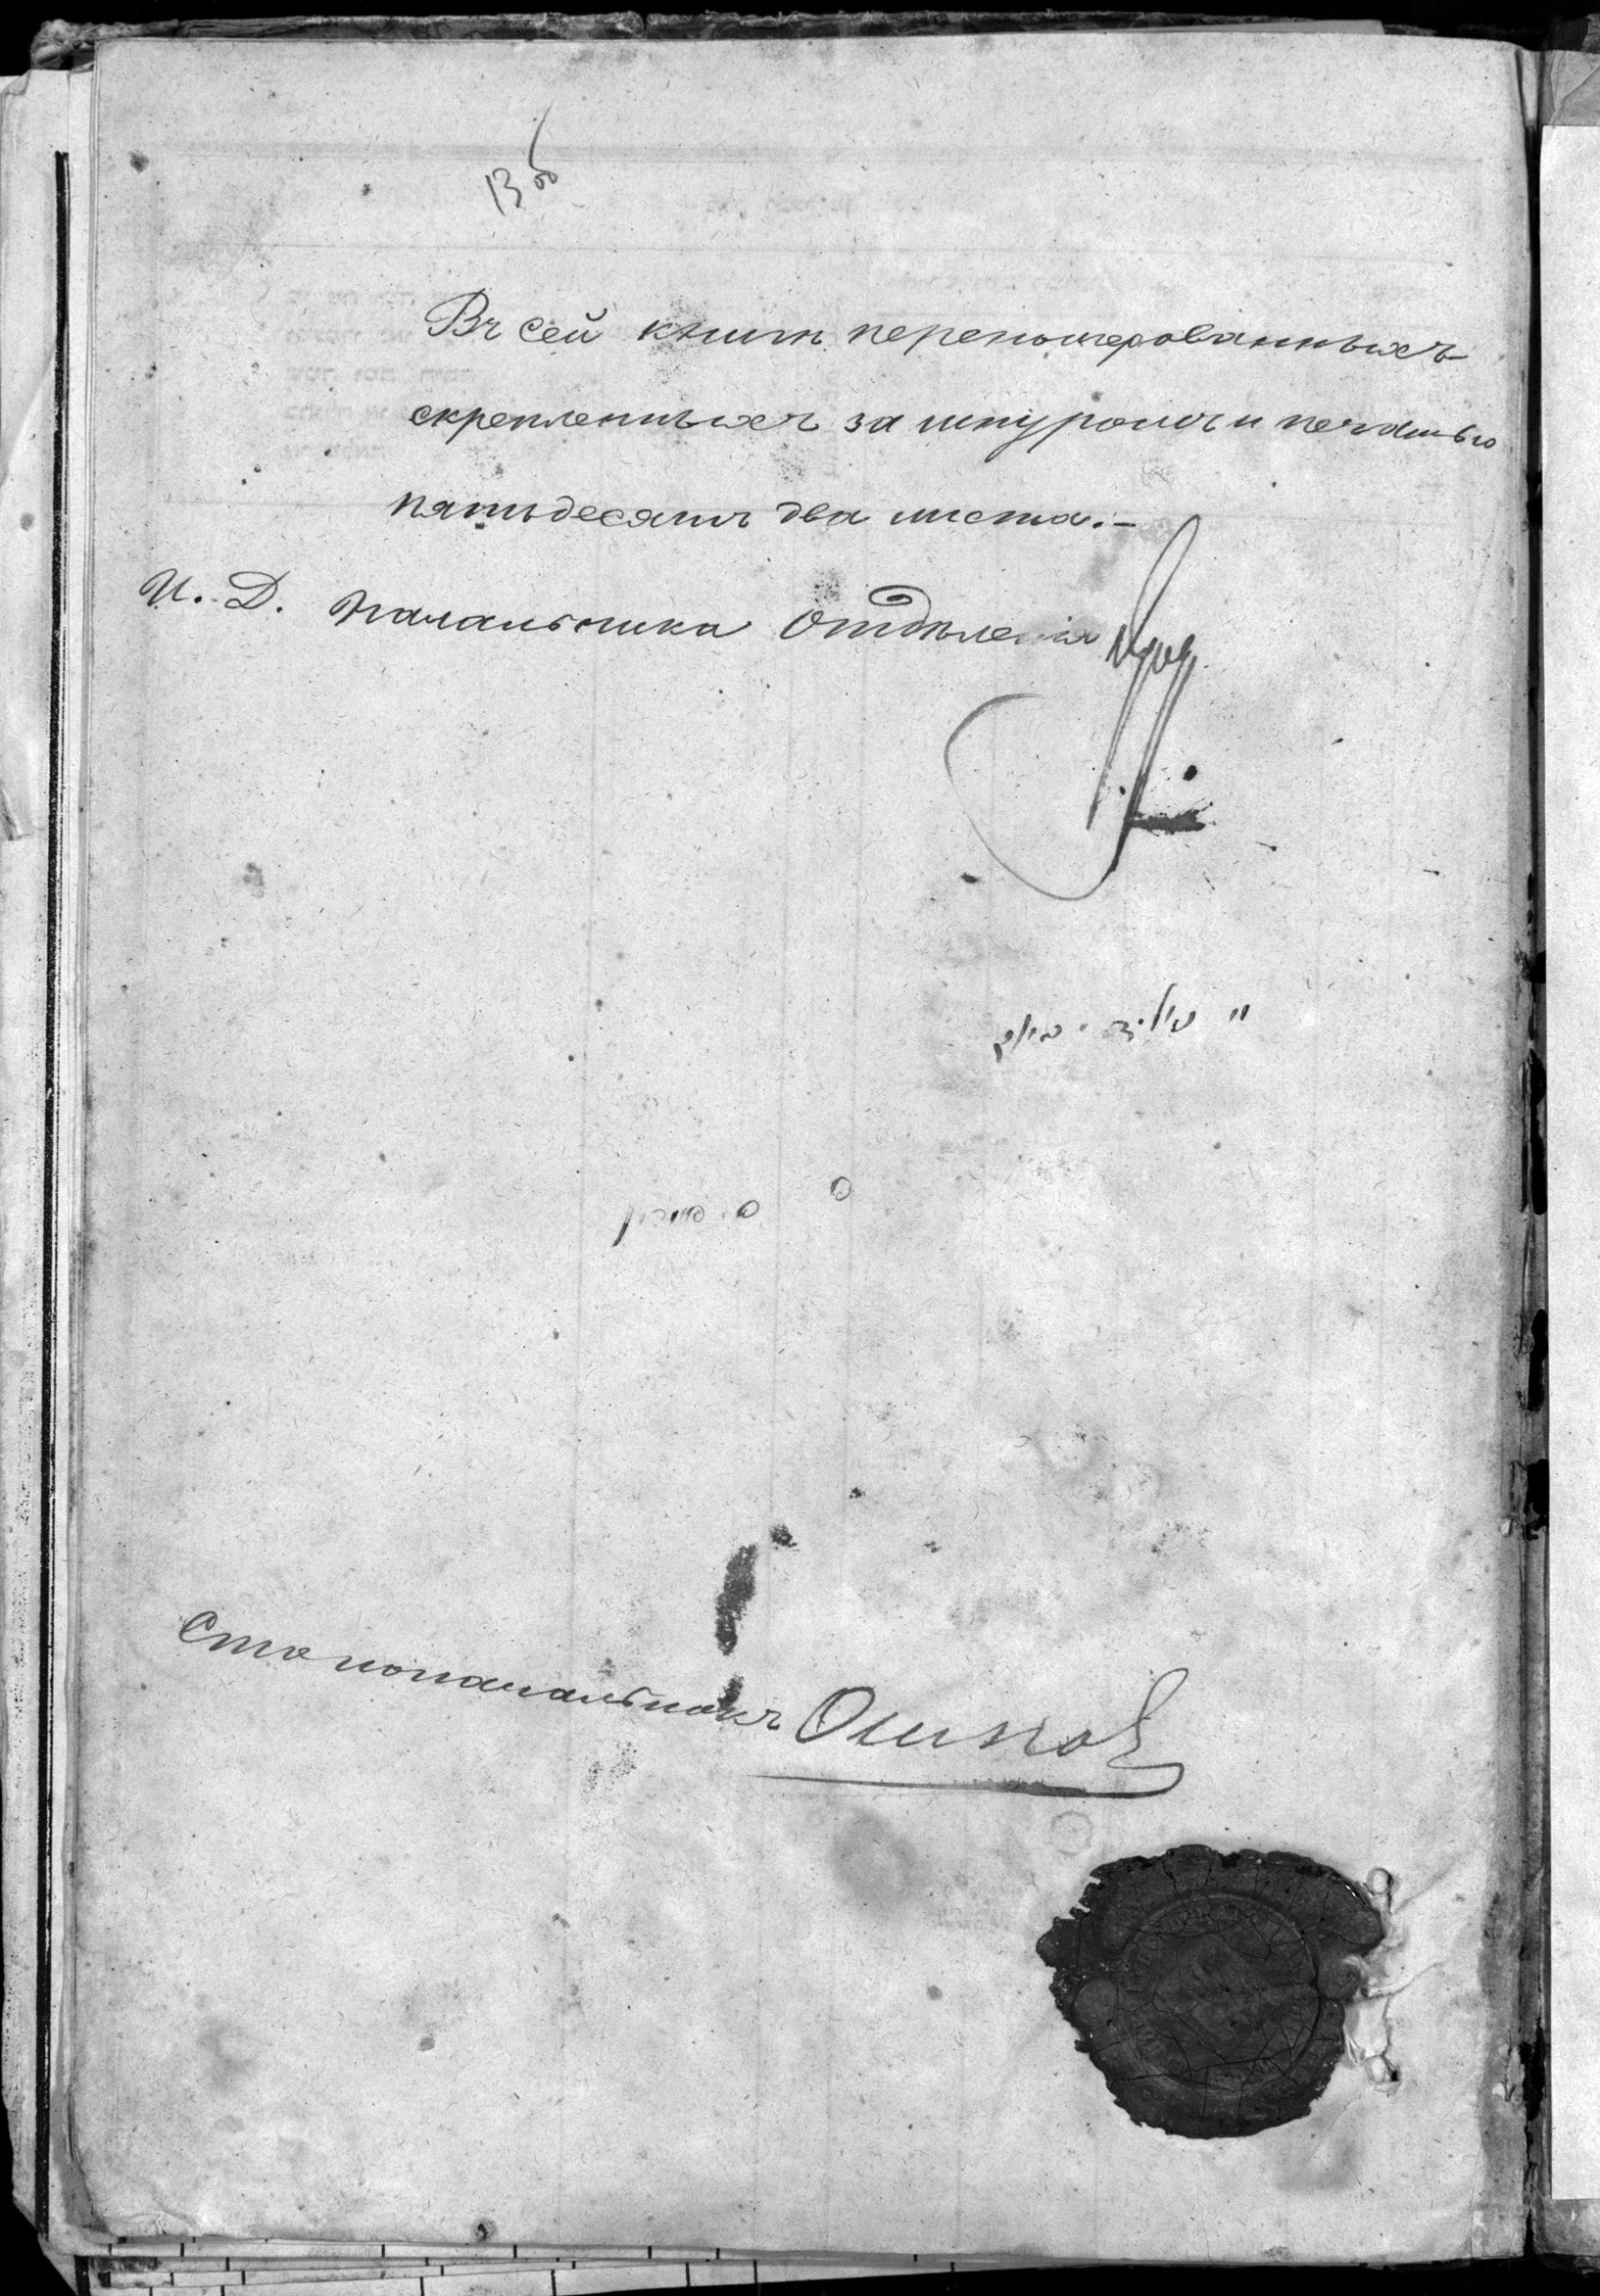 13 об
Въ сей книгѣ перенумерованныхъ
скрепленныхъ за шнуромъ и печатью
пятьдесятъ два листа.-
И. Д. Начальника Отдѣленія
Столоначальникъ